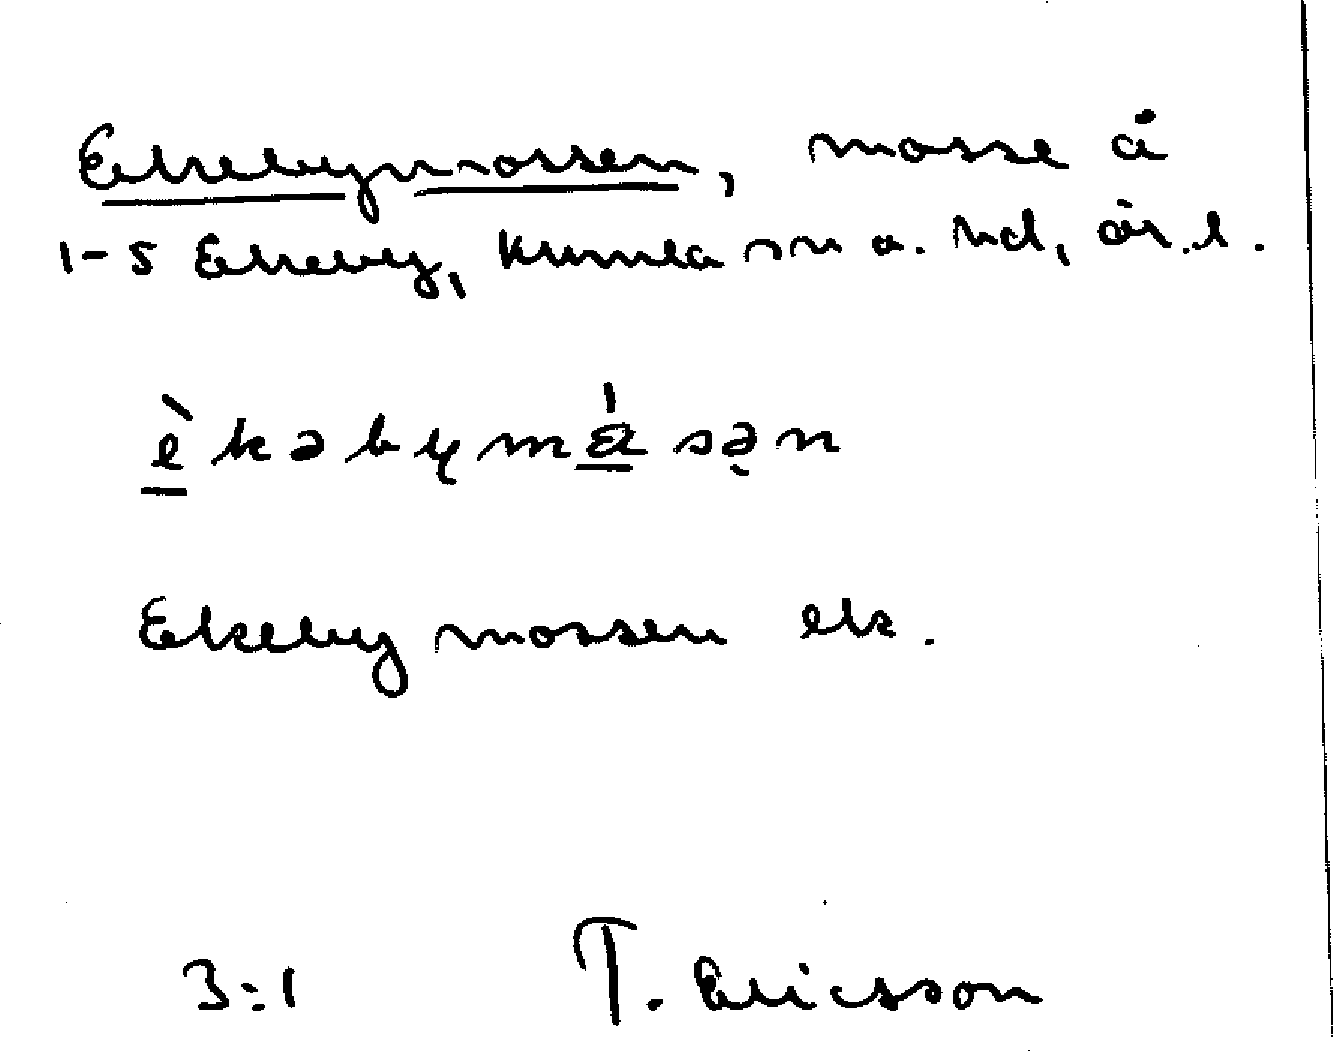 Ekebymossen, mosse å
1-5 Ekeby, Kumla sn o. hd, Ör. l.
èkəbymåsən
Ekebymossen ek.
3:1 T. Ericsson